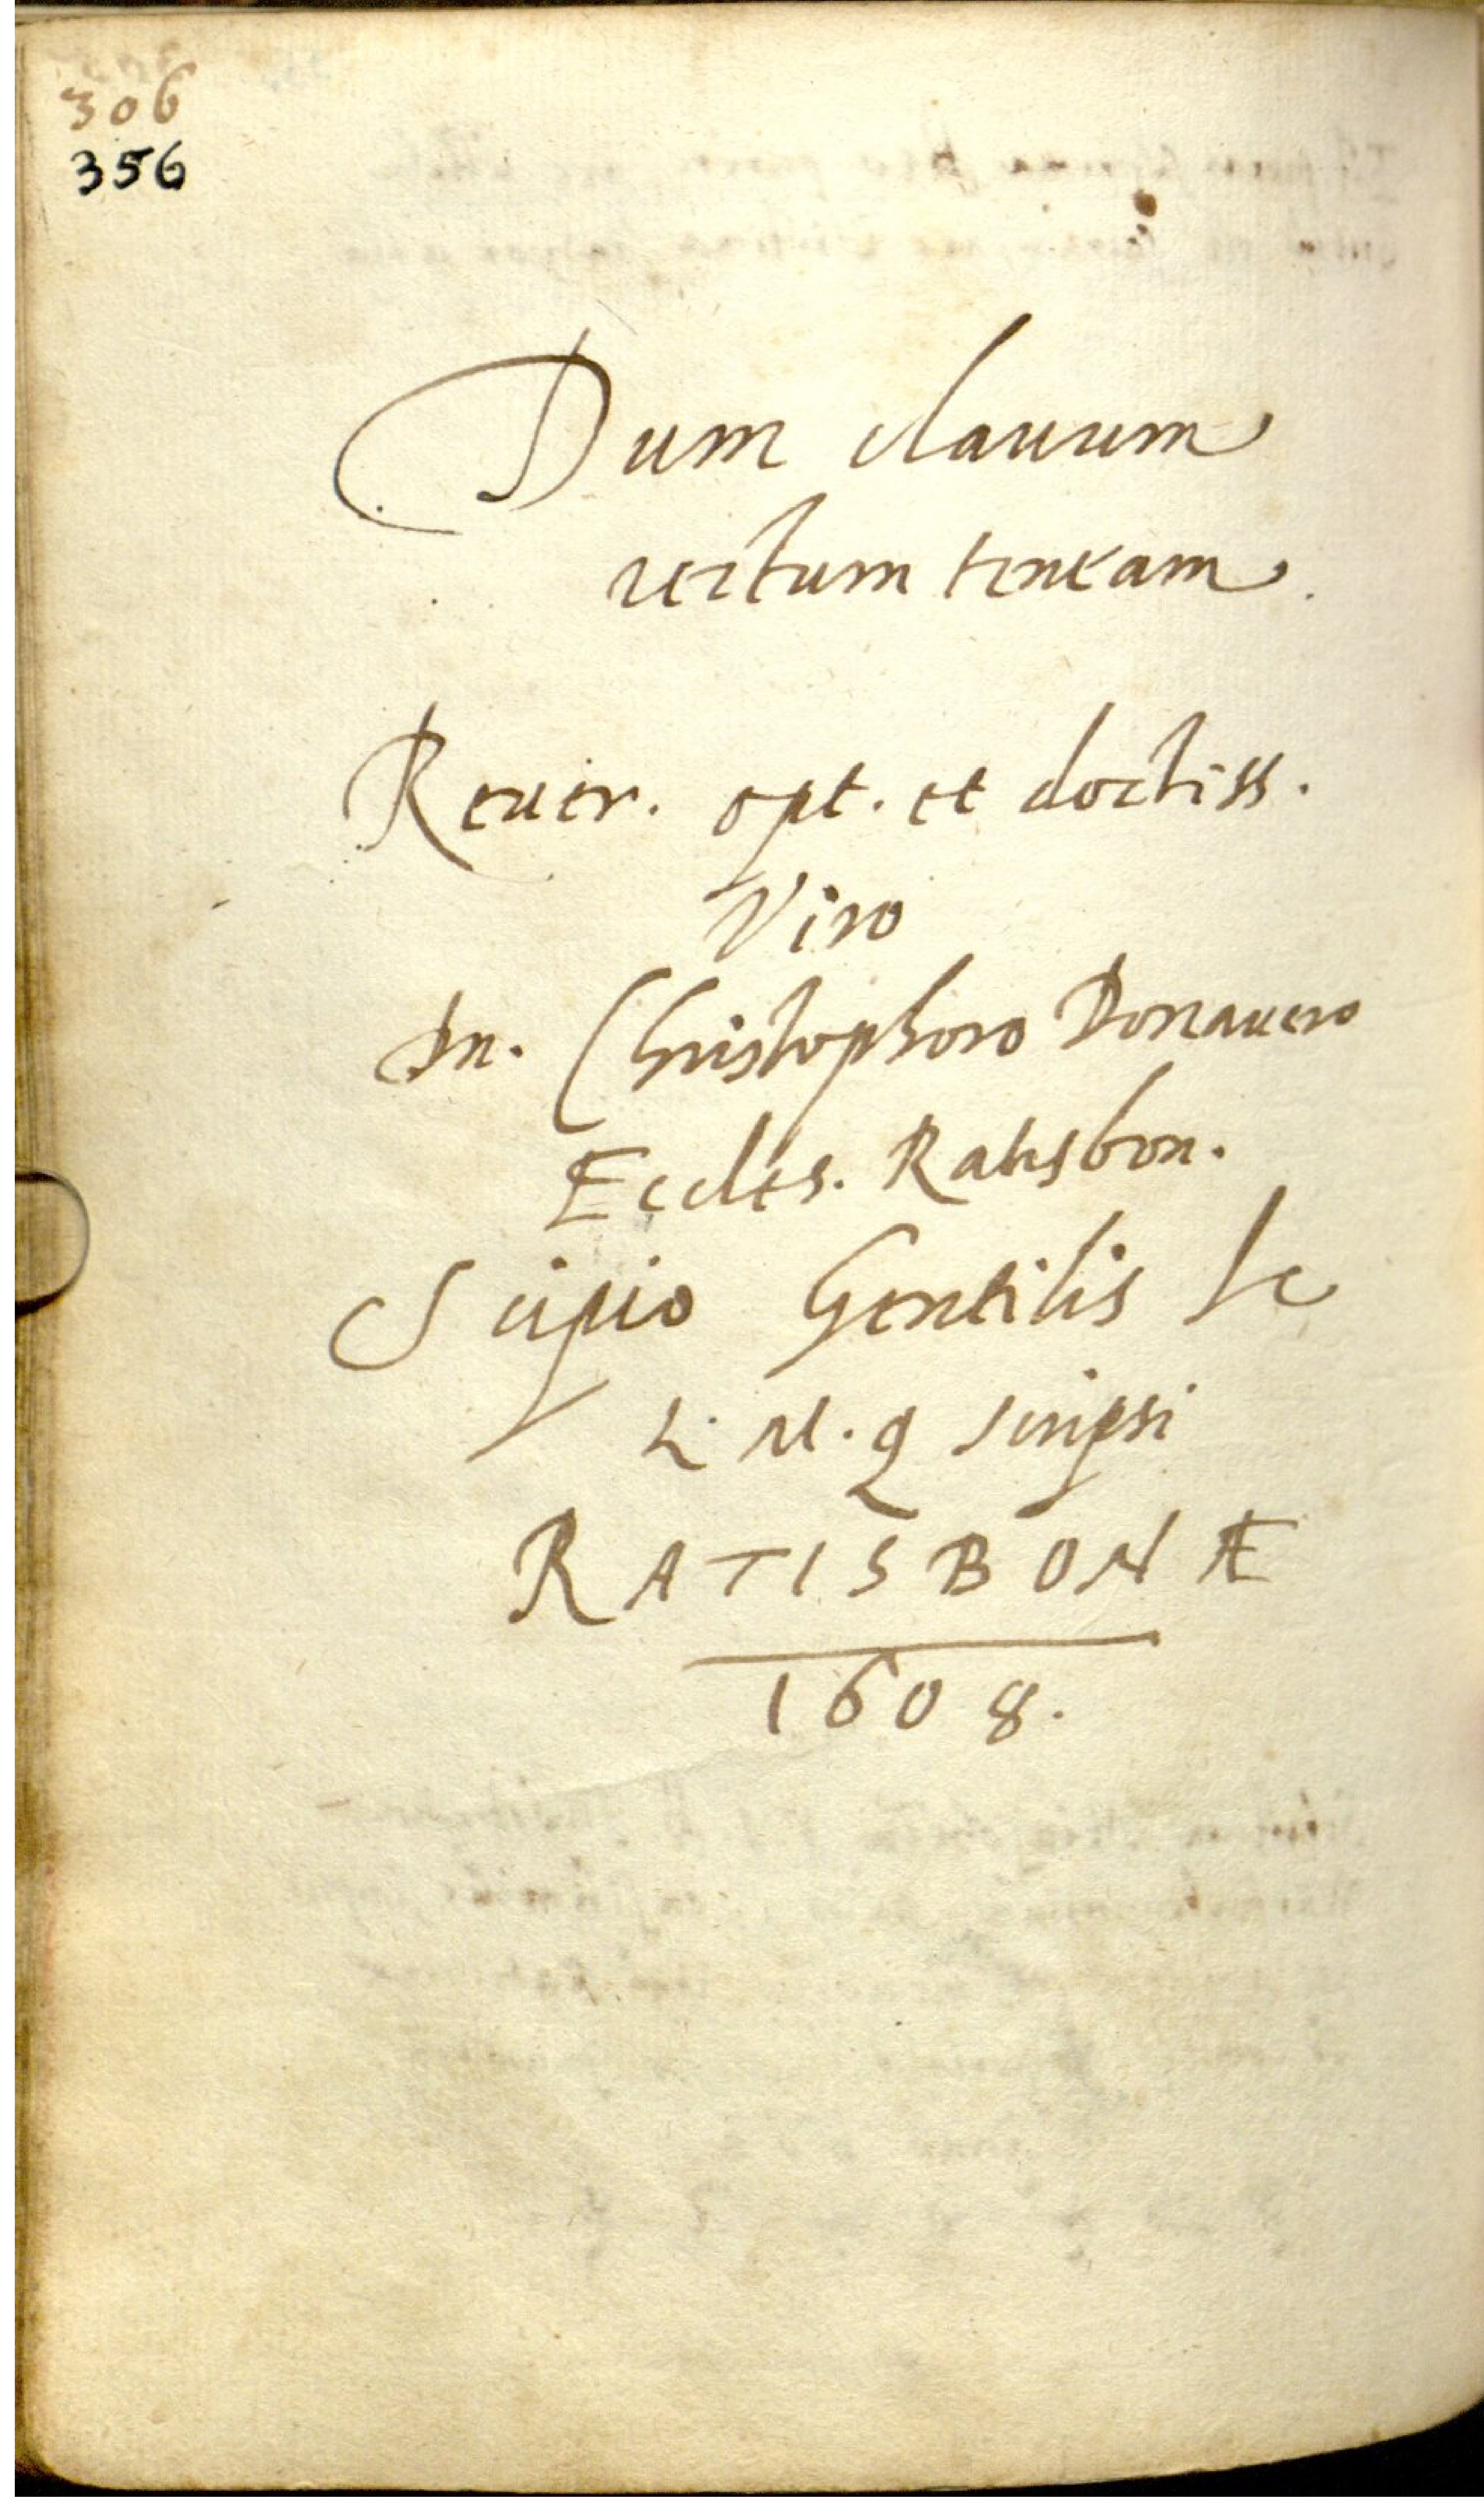 306
356
Dum clauum
rectum teneam.
Reuer. opt. et doctiss.
Viro
Dn. Christophoro Donauero
Eccles. Ratisbon.
Scipio Gentilis Ic
L. M. q scripsi
RATISBONÆ
1608.